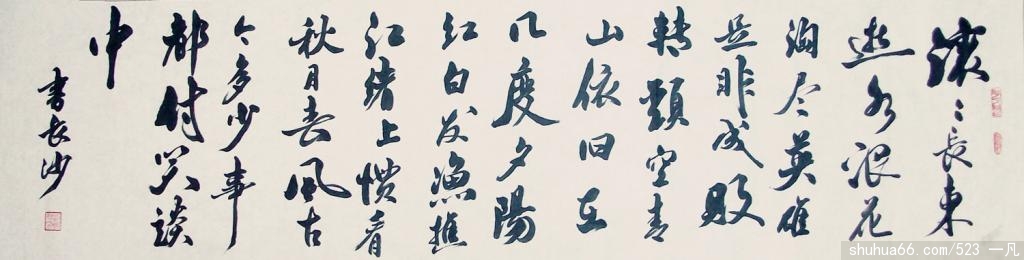 滚〻長東
逝水浪花
淘尽英雄
是非成败
轉頭空青
山依旧在
几度夕陽
红白发渔樵
江渚上惯看
秋月春風古
今多少事
都付笑談
中
書長沙
shuhua66.com/523 一凡